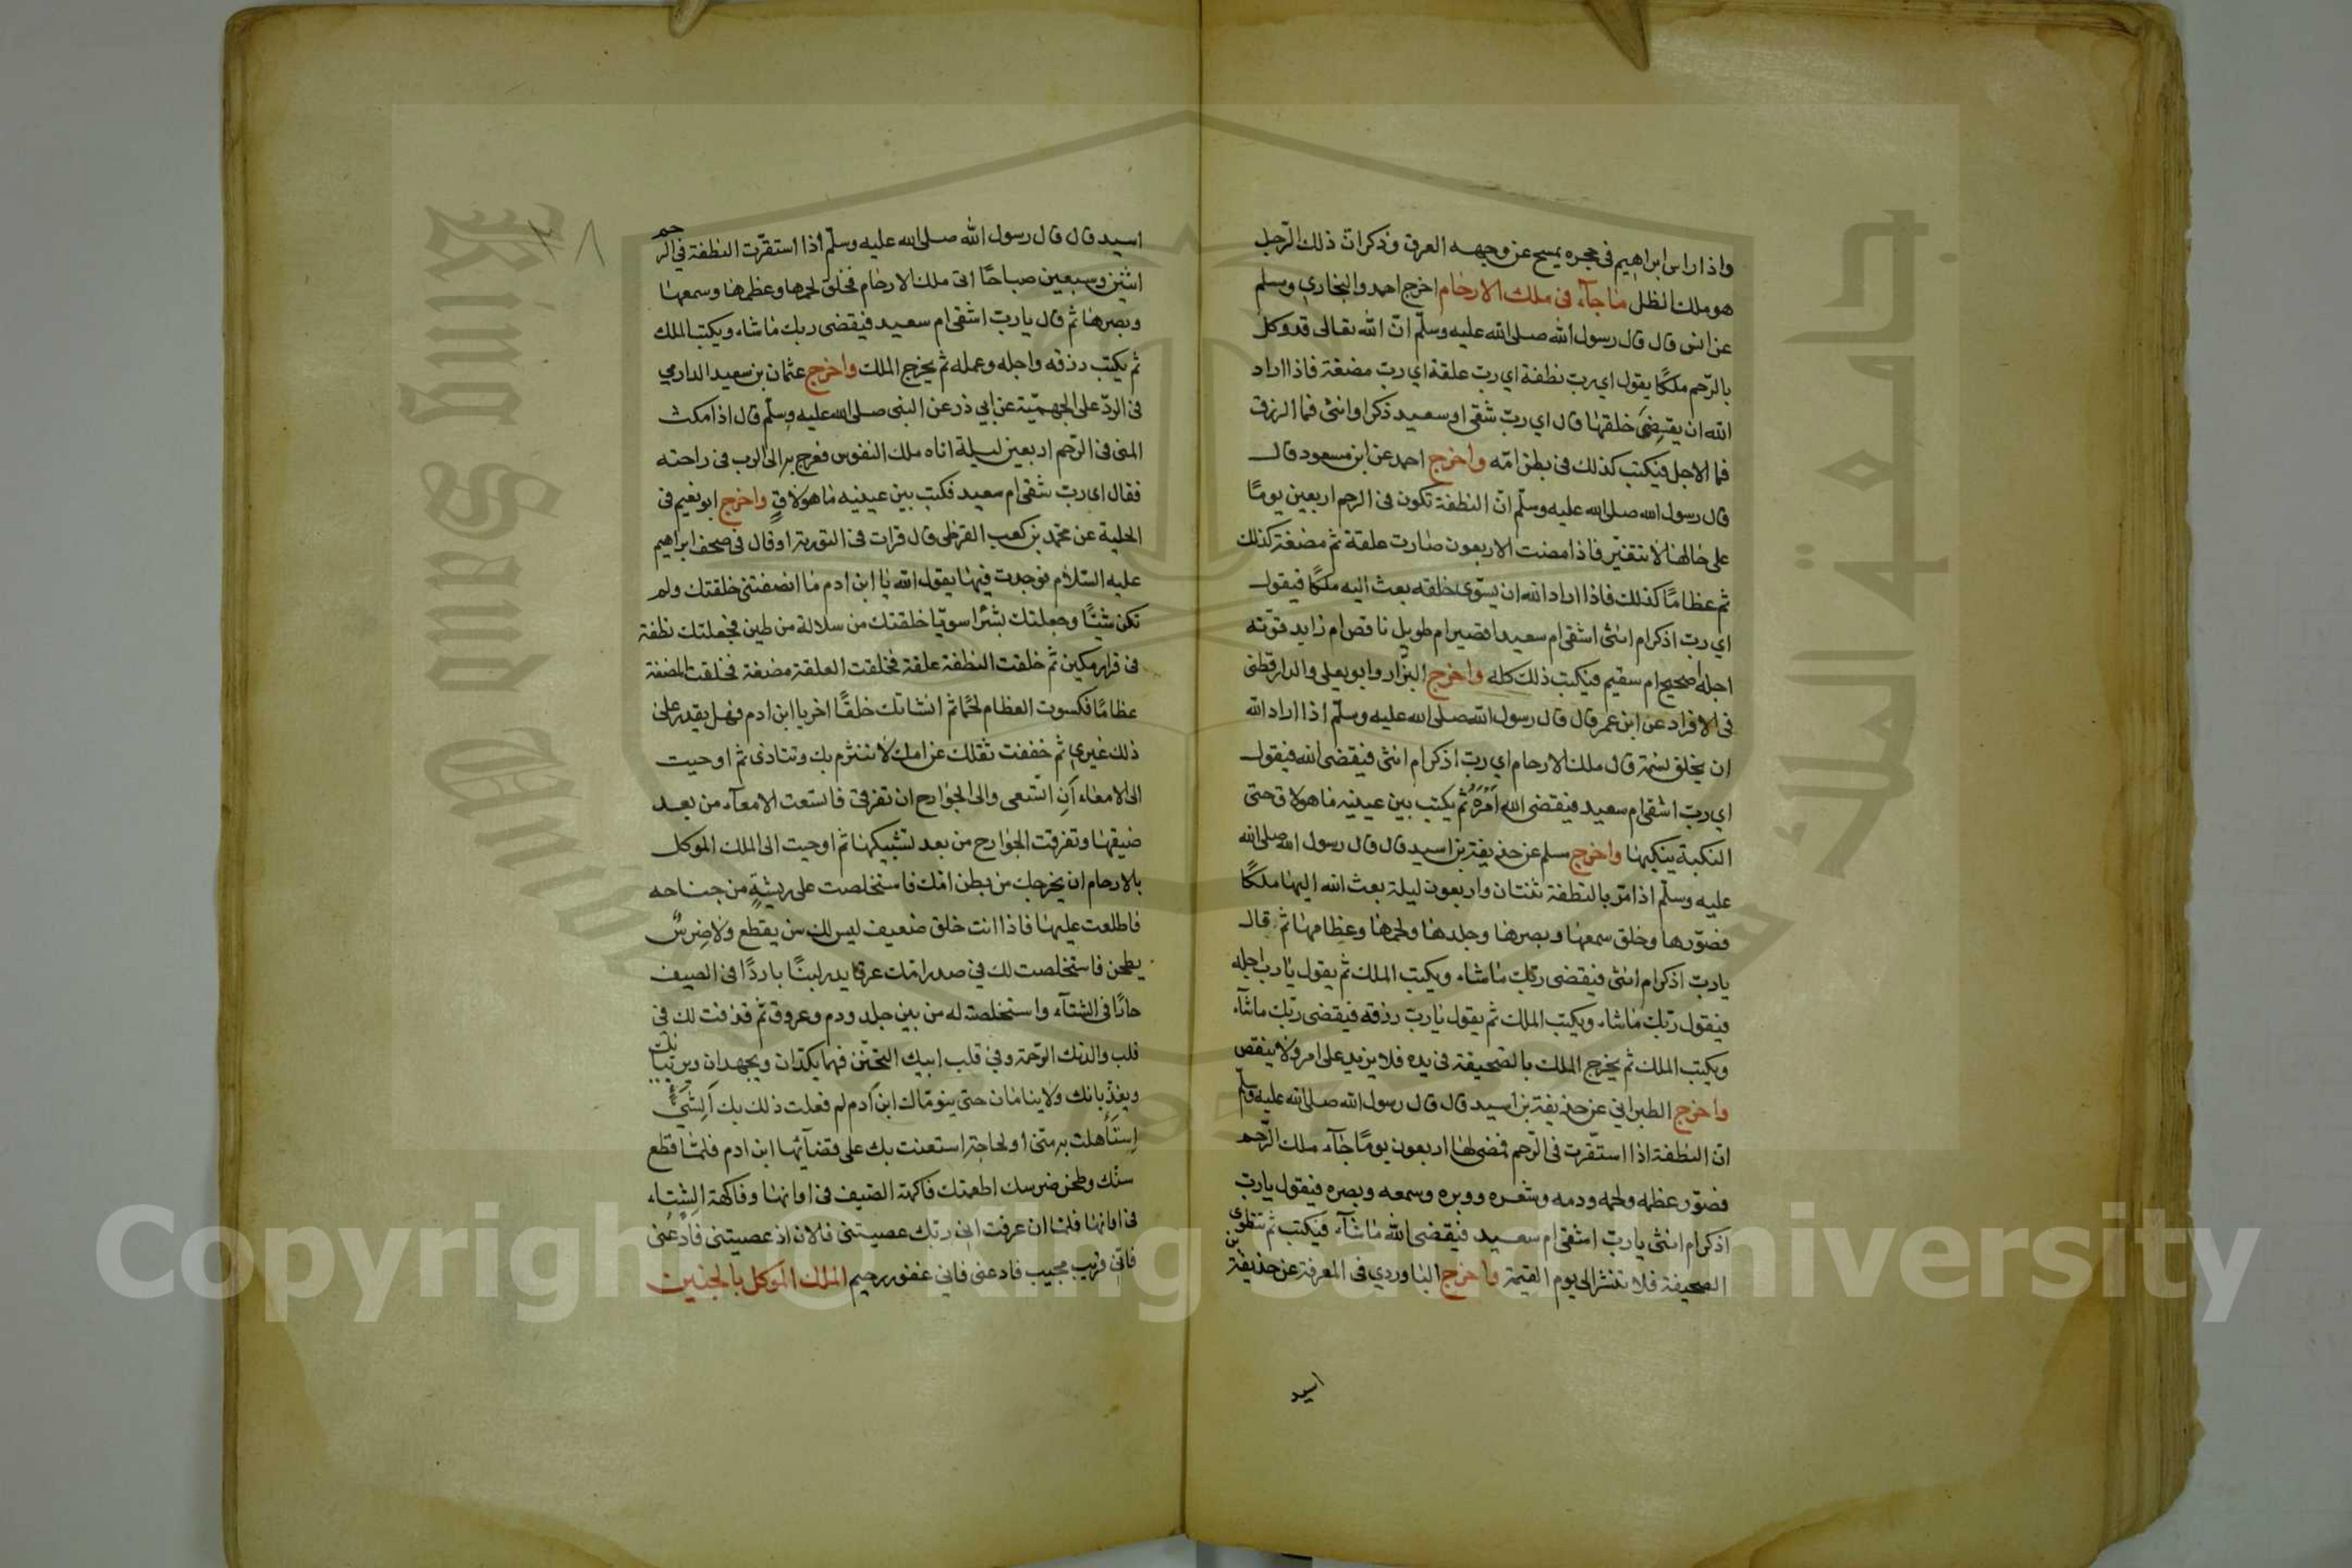 واذا راس ابراهيم فى حجره يمسح عن وجهه العرق وذكر ان ذلك الرّجل
هو ملك الظل ما جآء فى ملك الارحام اخرج احمد والبخاري ومسلم
عن انس قال قال رسول الله صلى الله عليه وسلّم انّ الله تعالى قد وكل
بالرّحم ملكًا يقول اى رب نطفة اي ربّ علقة اي ربّ مضغة فاذا اراد
الله ان يقضى خلقها قال اي ربّ شقى او سعيد ذكر او انثى فما الرزق
فما الاجل فيكتب كذلك فى بطن امّه واخرج احمد عن ابن مسعود قال
قال رسول الله صلى الله عليه وسلّم انّ النطفة تكون فى الرحم اربعين يومًا
على حالها لا تتغيّر فاذا مضت الاربعون صارت علقة ثم مضغة كذلك
ثم عظامًا كذلك فاذا اراد الله ان يسوّى خلقه بعث اليه ملكًا فيقول
اي ربّ اذكر ام انثى اشقى ام سعيد اقصير ام طويل ناقص ام زايد قوته
اجله اصحيح ام سقيم فيكتب ذلك كله واخرج البزّار وابو يعلى والدارقطنى
فى الافراد عن ابن عمر قال قال رسول الله صلى الله عليه وسلّم اذا اراد الله
ان يخلق نسمة قال ملك الارحام اي ربّ اذكر ام انثى فيقضى الله فيقول
اي ربّ اشقى ام سعيد فيقضى الله اَمْرَهُ ثم يكتب بين عينيه ما هو لاق حتى
النكبة ينكبها واخرج مسلم عن حذيفة بن اسيد قال قال رسول الله صلى الله
عليه وسلّم اذا مرّ بالنطفة ثنتان واربعون ليلة بعث الله اليها ملكًا
فصوّرها وخلق سمعها وبصرها وجلدها ولحمها وعظامها ثم قال
يا ربّ اذكر ام انثى فيقضى ربّك ما شاء ويكتب الملك ثم يقول يا رب اجله
فيقول ربّك ما شاء ويكتب الملك ثم يقول يا ربّ رزقه فيقضى ربّك ما شآء
ويكتب الملك ثم يخرج الملك بالصحيفة فى يده فلا يزيد على امر ولا ينقص
واخرج الطبراني عن حذيفة بن اسيد قال قال رسول الله صلى الله عليه وسلّم
انّ النطفة اذا استقّرت فى الرّحم فمضى لها اربعون يومًا جآء ملك الرّحم
فصوّر عظمه ولحمه ودمه وشعره وبشره وسمعه وبصره فيقول يا ربّ
اذكر ام انثى يا ربّ اشقى ام سعيد فيقضى الله ما شآء فيكتب ثم تنطوى
الصحيفة فلا تنشر الى يوم القيمة واخرج الباوردي فى المعرفة عن حذيفة بن
اسيد
٣٨
اسيد قال قال رسول الله صلى الله عليه وسلّم اذا استقرّت النطفة فى الرحم
اثنين وسبعين صباحًا اتى ملك الارحام فخلق لحمها وعظمها وسمعها
وبصرها ثم قال يا ربّ اشقى ام سعيد فيقضى ربك ما شاء ويكتب الملك
ثم يكتب رزقه واجله وعمله ثم يخرج الملك واخرج عثمان بن سعيد الدارمي
فى الردّ على الجهميّة عن ابي ذر عن النبى صلى الله عليه وسلّم قال اذا مكث
المنى فى الرّحم اربعين ليلة اتاه ملك النفوس فعرج به الى الرب فى راحته
فقال اى ربّ شقى ام سعيد فكتب بين عينيه ما هو لاقٍ واخرج ابو نعيم فى
الحلية عن محمّد بن كعب القرظى قال قرات فى التورية او قال فى صحف ابراهيم
عليه السّلام فوجدت فيها يقول الله يا ابن ادم ما انصفتنى خلقتك ولم
تكن شيئًا وجعلتك بشرًا سويّا خلقتك من سلالة من طين فجعلتك نطفة
فى قرار مكين ثم خلقت النطفة علقة فخلقت العلقة مضغة فخلقت المضغة
عظامًا فكسوت العظام لحمًا ثم انشاتك خلقًا اخر يا ابن ادم فهل يقدر على
ذلك غيري ثم خففت ثقلك عن امك لا تتبرم بك وتتاذى ثم اوحيت
الى الامعاء اَنِ اتّسعى والى الجوارح ان تفرقى فاتسعت الامعآء من بعد
ضيقها وتفرقت الجوارح من بعد تشبيكها ثم اوحيت الى الملك الموكل
بالارحام ان يخرجك من بطن امّك فاستخلصت على ريشةٍ من جناحه
فاطلعت عليها فاذا انت خلق ضعيف ليس لك سن يقطع ولا ضِرسٌ
يطحن فاستخلصت لك فى صدر امّك عرقا يدر لبنًا باردًا فى الصيف
حارًا فى الشتآء واستخلصته له من بين جلد ودم وعروق ثم قذفت لك فى
قلب والدتك الرّحمة وفى قلب ابيك التحنّن فهما يكدّان ويجهدان ويربّيانك
ويغذّيانك ولا ينامان حتى ينوّماك ابن آدم لم فعلت ذلك بك اَلِشَىْءٍ
اِستَأهلت به متى او لحاجة استعنت بك على قضآئها ابن ادم فلمّا قطع
سنّك وطحن ضرسك اطعمتك فاكهة الصّيف فى اوانها وفاكهة الشّتاء
فى اوانها فلمّا ان عرفت انى ربّك عصيتنى فالان اذ عصيتنى فادعنى
فانّى قريب مجيب فادعنى فانى غفور رحيم الملك الموكل بالجنين
جامعة الملك سعود
King Saud University
Copyright © King Saud University